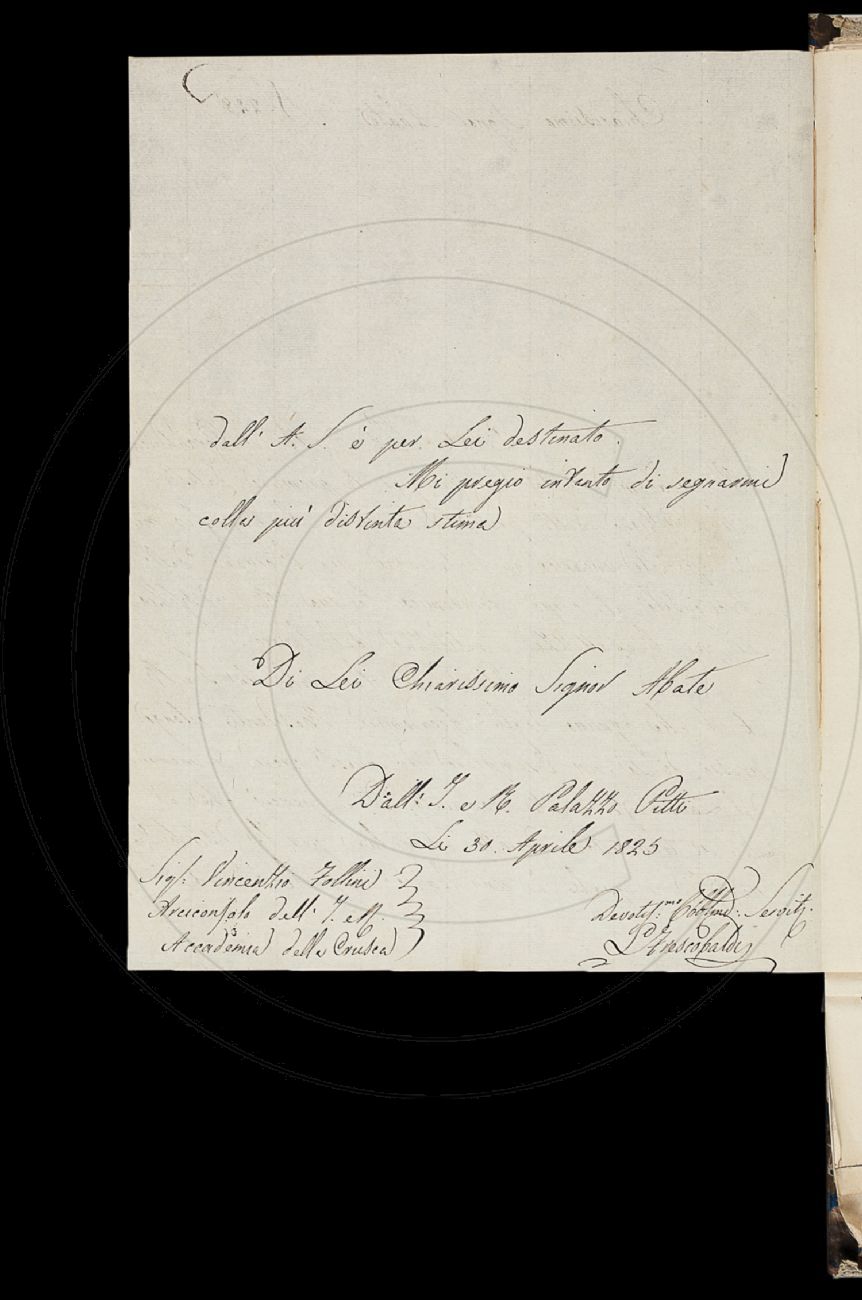 dall' A. S. è per Lei destinato.
Mi pregio intanto di segnarmi
colla più distinta stima
Di Lei Chiarissimo Signor Abate
Dall' I. e R. Palazzo Pitti
Li 30. Aprile 1825
Sig.r Vincenzio Follini
Arciconsolo dell' I. e R.
Accademia della Crusca
Devotis.mo Obblmo: Servit.
Frescobaldi